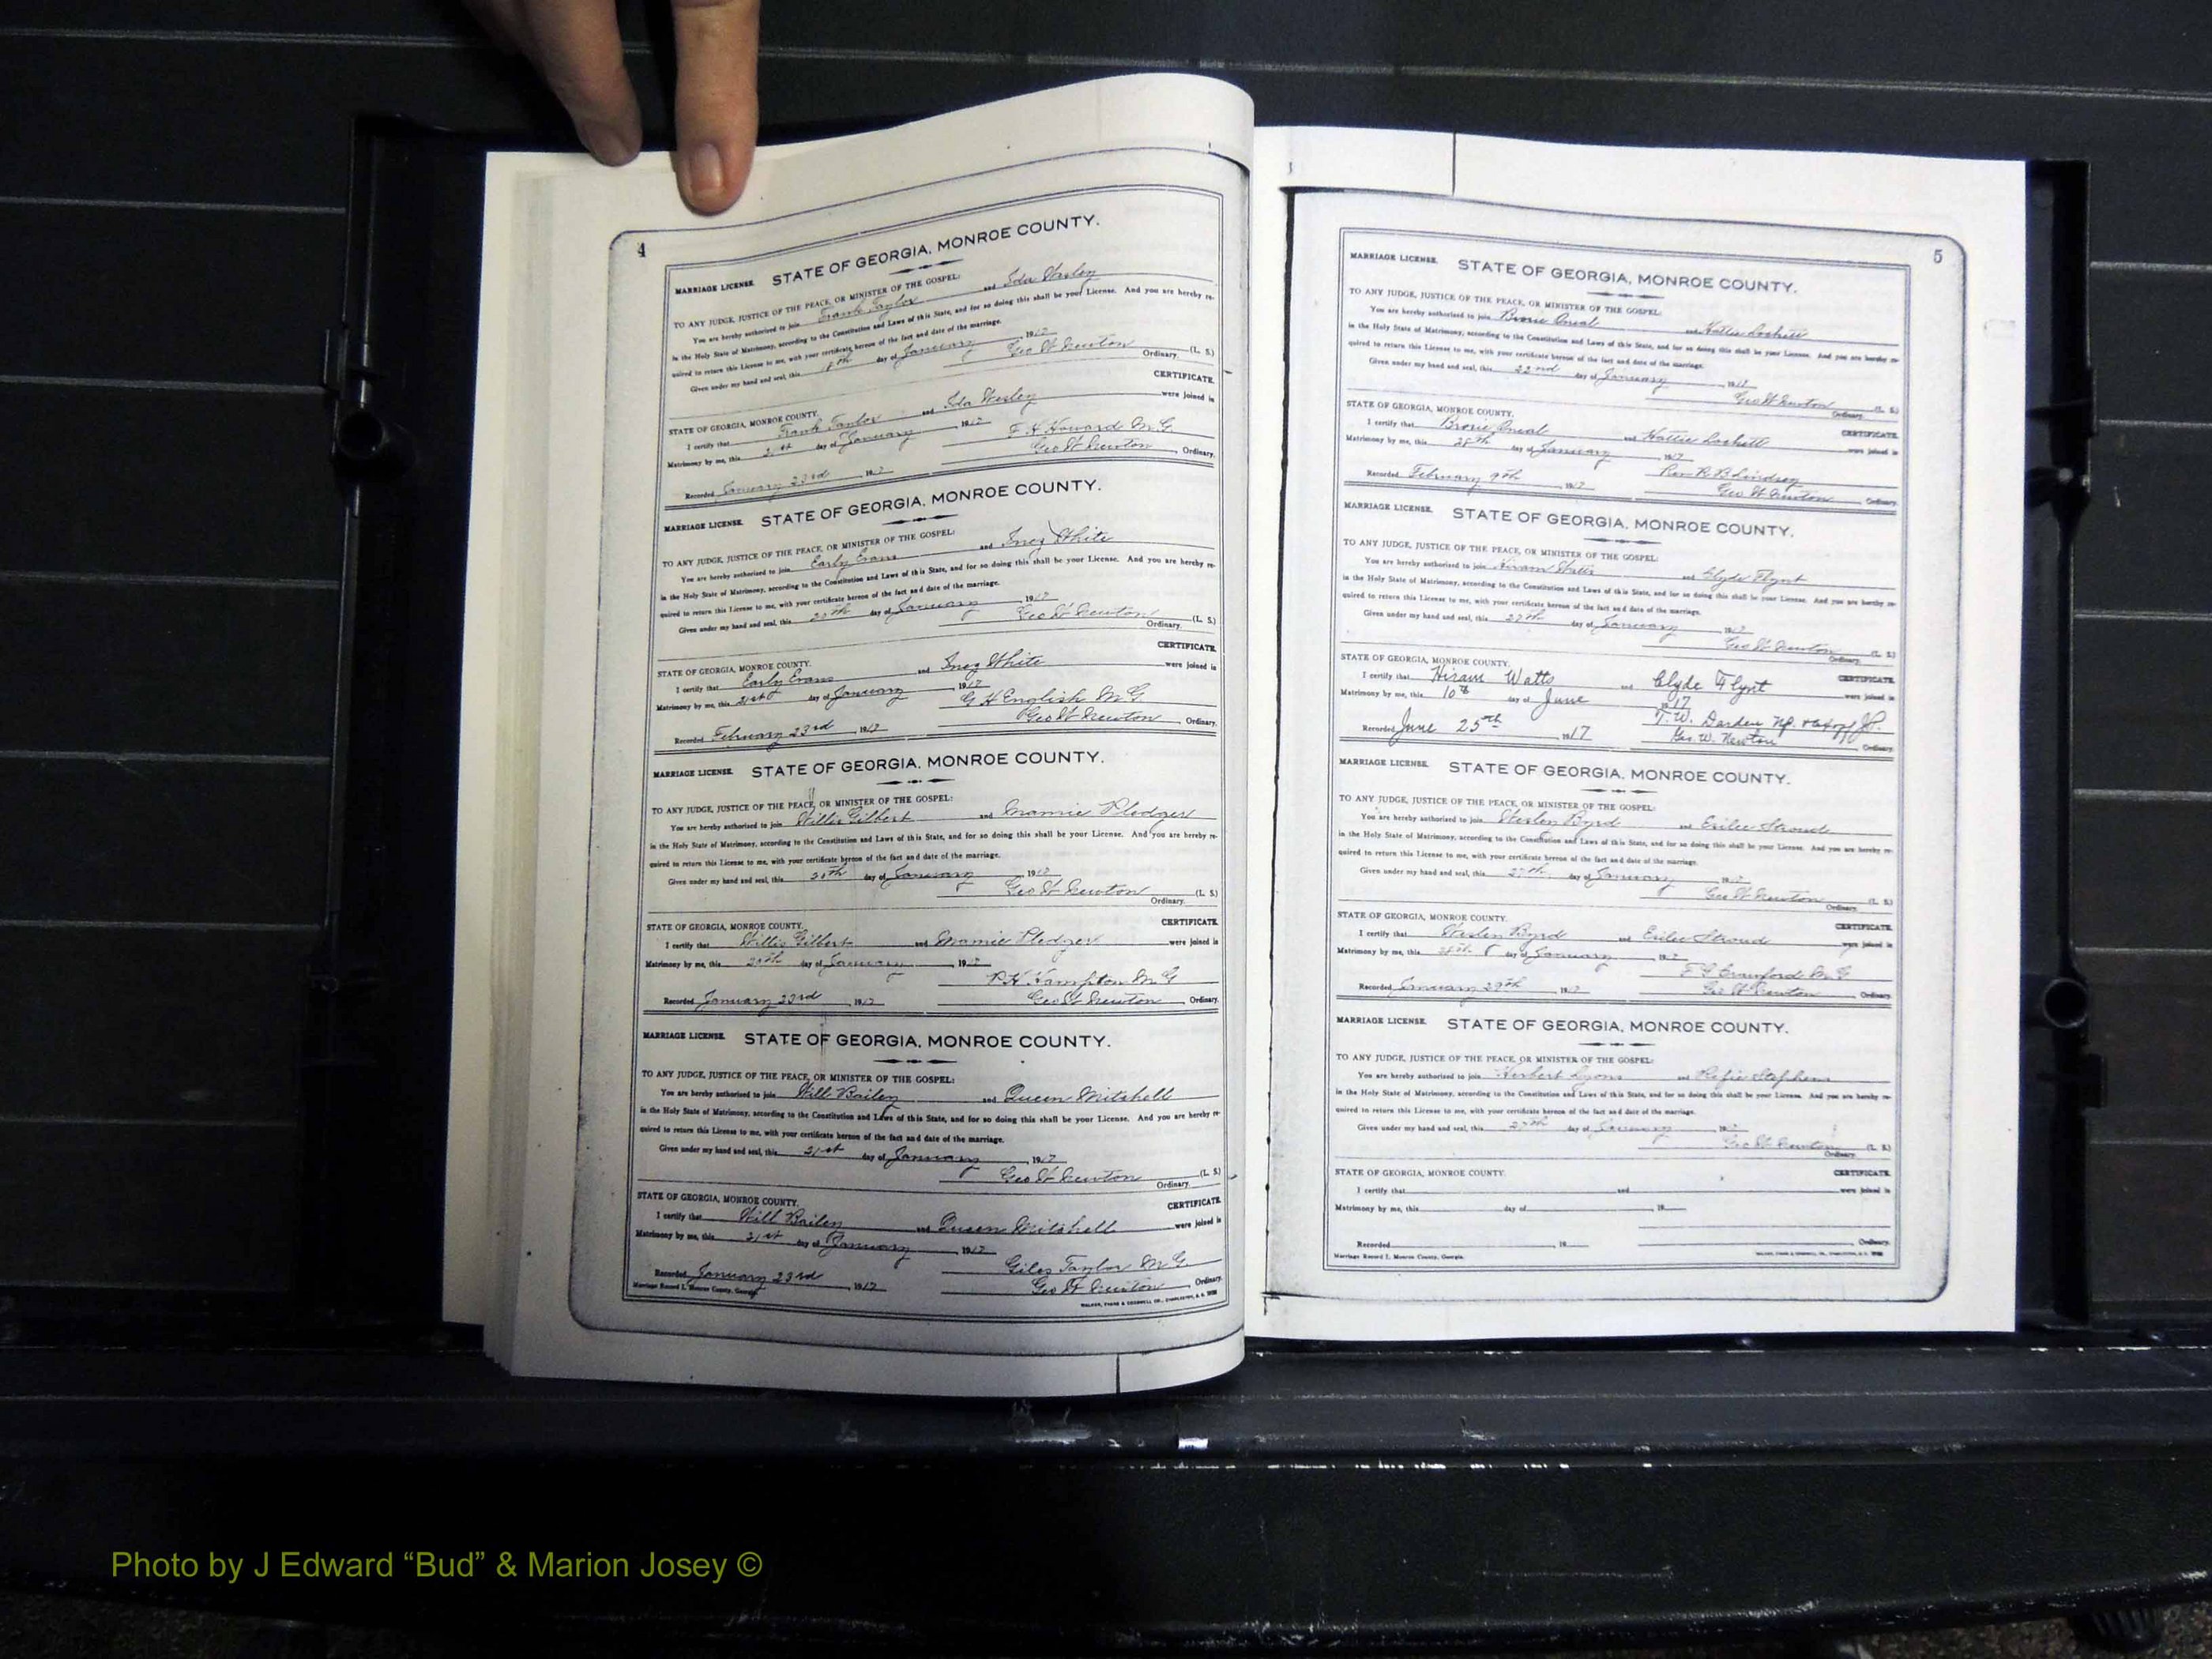 4
MARRIAGE LICENSE. STATE OF GEORGIA, MONROE COUNTY.
TO ANY JUDGE, JUSTICE OF THE PEACE, OR MINISTER OF THE GOSPEL:
You are hereby authorized to join Frank Taylor and Ida Wesley
in the Holy State of Matrimony, according to the Constitution and Laws of this State, and for so doing this shall be your License. And you are hereby re-
quired to return this License to me, with your certificate hereon of the fact and date of the marriage.
Given under my hand and seal, this day of January, 1917
Geo W Newton (L. S.)
Ordinary.
STATE OF GEORGIA, MONROE COUNTY. CERTIFICATE.
I certify that Frank Taylor and Ida Wesley were joined in
Matrimony by me, this 21st day of January, 1917
F H Howard M.G.
Recorded January 23rd, 1917 Geo W Newton, Ordinary.
MARRIAGE LICENSE. STATE OF GEORGIA, MONROE COUNTY.
TO ANY JUDGE, JUSTICE OF THE PEACE, OR MINISTER OF THE GOSPEL:
You are hereby authorized to join Early Evans and Inez White
in the Holy State of Matrimony, according to the Constitution and Laws of this State, and for so doing this shall be your License. And you are hereby re-
quired to return this License to me, with your certificate hereon of the fact and date of the marriage.
Given under my hand and seal, this 20th day of January, 1917
Geo W Newton (L. S.)
Ordinary.
STATE OF GEORGIA, MONROE COUNTY. CERTIFICATE.
I certify that Early Evans and Inez White were joined in
Matrimony by me, this 21st day of January, 1917
G H English M.G.
Recorded February 23rd, 1917 Geo W Newton, Ordinary.
MARRIAGE LICENSE. STATE OF GEORGIA, MONROE COUNTY.
TO ANY JUDGE, JUSTICE OF THE PEACE, OR MINISTER OF THE GOSPEL:
You are hereby authorized to join Willis Gilbert and Mamie Pledger
in the Holy State of Matrimony, according to the Constitution and Laws of this State, and for so doing this shall be your License. And you are hereby re-
quired to return this License to me, with your certificate hereon of the fact and date of the marriage.
Given under my hand and seal, this 20th day of January, 1917
Geo W Newton (L. S.)
Ordinary.
STATE OF GEORGIA, MONROE COUNTY. CERTIFICATE.
I certify that Willis Gilbert and Mamie Pledger were joined in
Matrimony by me, this 20th day of January, 1917
P.H. Hampton M G
Recorded January 23rd, 1917 Geo W Newton, Ordinary.
MARRIAGE LICENSE. STATE OF GEORGIA, MONROE COUNTY.
TO ANY JUDGE, JUSTICE OF THE PEACE, OR MINISTER OF THE GOSPEL:
You are hereby authorized to join Will Bailey and Queen Mitchell
in the Holy State of Matrimony, according to the Constitution and Laws of this State, and for so doing this shall be your License. And you are hereby re-
quired to return this License to me, with your certificate hereon of the fact and date of the marriage.
Given under my hand and seal, this 21st day of January, 1917
Geo W Newton (L. S.)
Ordinary.
STATE OF GEORGIA, MONROE COUNTY. CERTIFICATE.
I certify that Will Bailey and Queen Mitchell were joined in
Matrimony by me, this 21st day of January, 1917
Giles Taylor M G.
Recorded January 23rd, 1917 Geo W Newton, Ordinary.
Marriage Record I, Monroe County, Georgia.
5
MARRIAGE LICENSE. STATE OF GEORGIA, MONROE COUNTY.
TO ANY JUDGE, JUSTICE OF THE PEACE, OR MINISTER OF THE GOSPEL:
You are hereby authorized to join and Hattie
in the Holy State of Matrimony, according to the Constitution and Laws of this State, and for so doing this shall be your License. And you are hereby re-
quired to return this License to me, with your certificate hereon of the fact and date of the marriage.
Given under my hand and seal, this 22nd day of January, 1917
Geo W Newton (L. S.)
Ordinary.
STATE OF GEORGIA, MONROE COUNTY. CERTIFICATE.
I certify that and Hattie were joined in
Matrimony by me, this 28th day of January, 1917
Rev R B Lindsey
Recorded February 9th, 1917 Geo W Newton, Ordinary.
MARRIAGE LICENSE. STATE OF GEORGIA, MONROE COUNTY.
TO ANY JUDGE, JUSTICE OF THE PEACE, OR MINISTER OF THE GOSPEL:
You are hereby authorized to join Hiram Watts and Clyde Flynt
in the Holy State of Matrimony, according to the Constitution and Laws of this State, and for so doing this shall be your License. And you are hereby re-
quired to return this License to me, with your certificate hereon of the fact and date of the marriage.
Given under my hand and seal, this 27th day of January, 1917
Geo W Newton (L. S.)
Ordinary.
STATE OF GEORGIA, MONROE COUNTY. CERTIFICATE.
I certify that Hiram Watts and Clyde Flynt were joined in
Matrimony by me, this 10th day of June, 1917
T. W. Darden N.P. & J.P.
Recorded June 25th, 1917 Geo. W. Newton Ordinary.
MARRIAGE LICENSE. STATE OF GEORGIA, MONROE COUNTY.
TO ANY JUDGE, JUSTICE OF THE PEACE, OR MINISTER OF THE GOSPEL:
You are hereby authorized to join Weslen Byrd and Stroud
in the Holy State of Matrimony, according to the Constitution and Laws of this State, and for so doing this shall be your License. And you are hereby re-
quired to return this License to me, with your certificate hereon of the fact and date of the marriage.
Given under my hand and seal, this 27th day of January, 1917
Geo W Newton (L. S.)
Ordinary.
STATE OF GEORGIA, MONROE COUNTY. CERTIFICATE.
I certify that Weslen Byrd and Stroud were joined in
Matrimony by me, this 28th day of January, 1917
F G Crawford M.G
Recorded January 29th, 1917 Geo W Newton, Ordinary.
MARRIAGE LICENSE. STATE OF GEORGIA, MONROE COUNTY.
TO ANY JUDGE, JUSTICE OF THE PEACE, OR MINISTER OF THE GOSPEL:
You are hereby authorized to join Herbert Lyons and Stephens
in the Holy State of Matrimony, according to the Constitution and Laws of this State, and for so doing this shall be your License. And you are hereby re-
quired to return this License to me, with your certificate hereon of the fact and date of the marriage.
Given under my hand and seal, this 27th day of January, 1917
Geo W Newton (L. S.)
Ordinary.
STATE OF GEORGIA, MONROE COUNTY. CERTIFICATE.
I certify that and were joined in
Matrimony by me, this day of, 19
Recorded, 19 , Ordinary.
Marriage Record I, Monroe County, Georgia.
Photo by J Edward “Bud” & Marion Josey ©